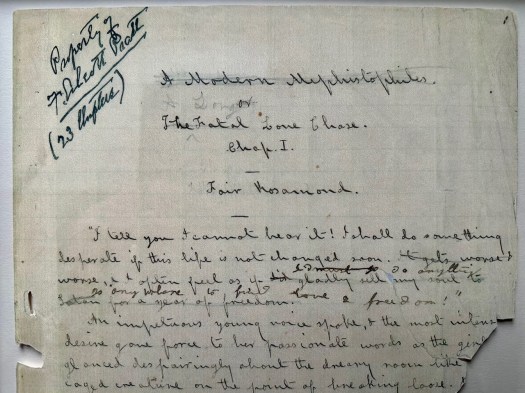 Property of
F. Alcott Pratt
(23 Chapters)
A Modern Mephistopheles.
or
The Fatal Love Chase.
Chap. I.
Fair Rosamond.
"I tell you I cannot bear it! I shall do something
desperate if this life is not changed soon. It gets worse &
worse, & I often feel as if I'd gladly sell my soul to
Satan for a year of freedom."
An impetuous young voice spoke, & the most intense
desire gave force to her passionate words as the girl
glanced despairingly about the dreary room like a
caged creature on the point of breaking loose.